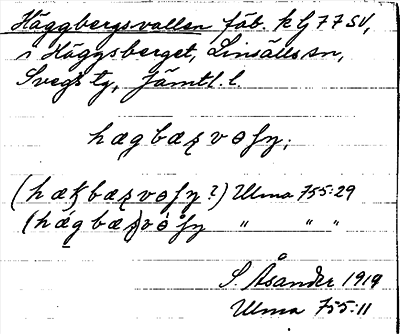 Häggbergsvallen fäb. k Lj 77 SV,
i Häggsberget, Linsälls sn,
Svegs tg, Jämtl. l.
hægbæʐvɵſy;
(hækbæʐvɵſy?) Ulma 755:29
(hǽgbæʐvɵ̀ſy " " "
S. Åsander 1919
Ulma 755:11